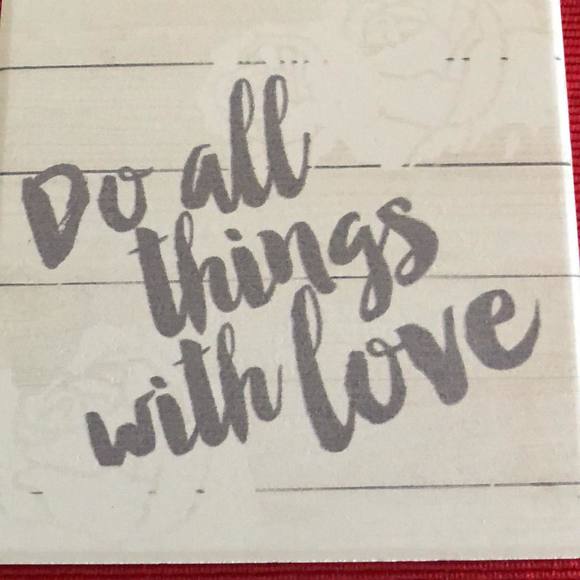 Do all
things
with love